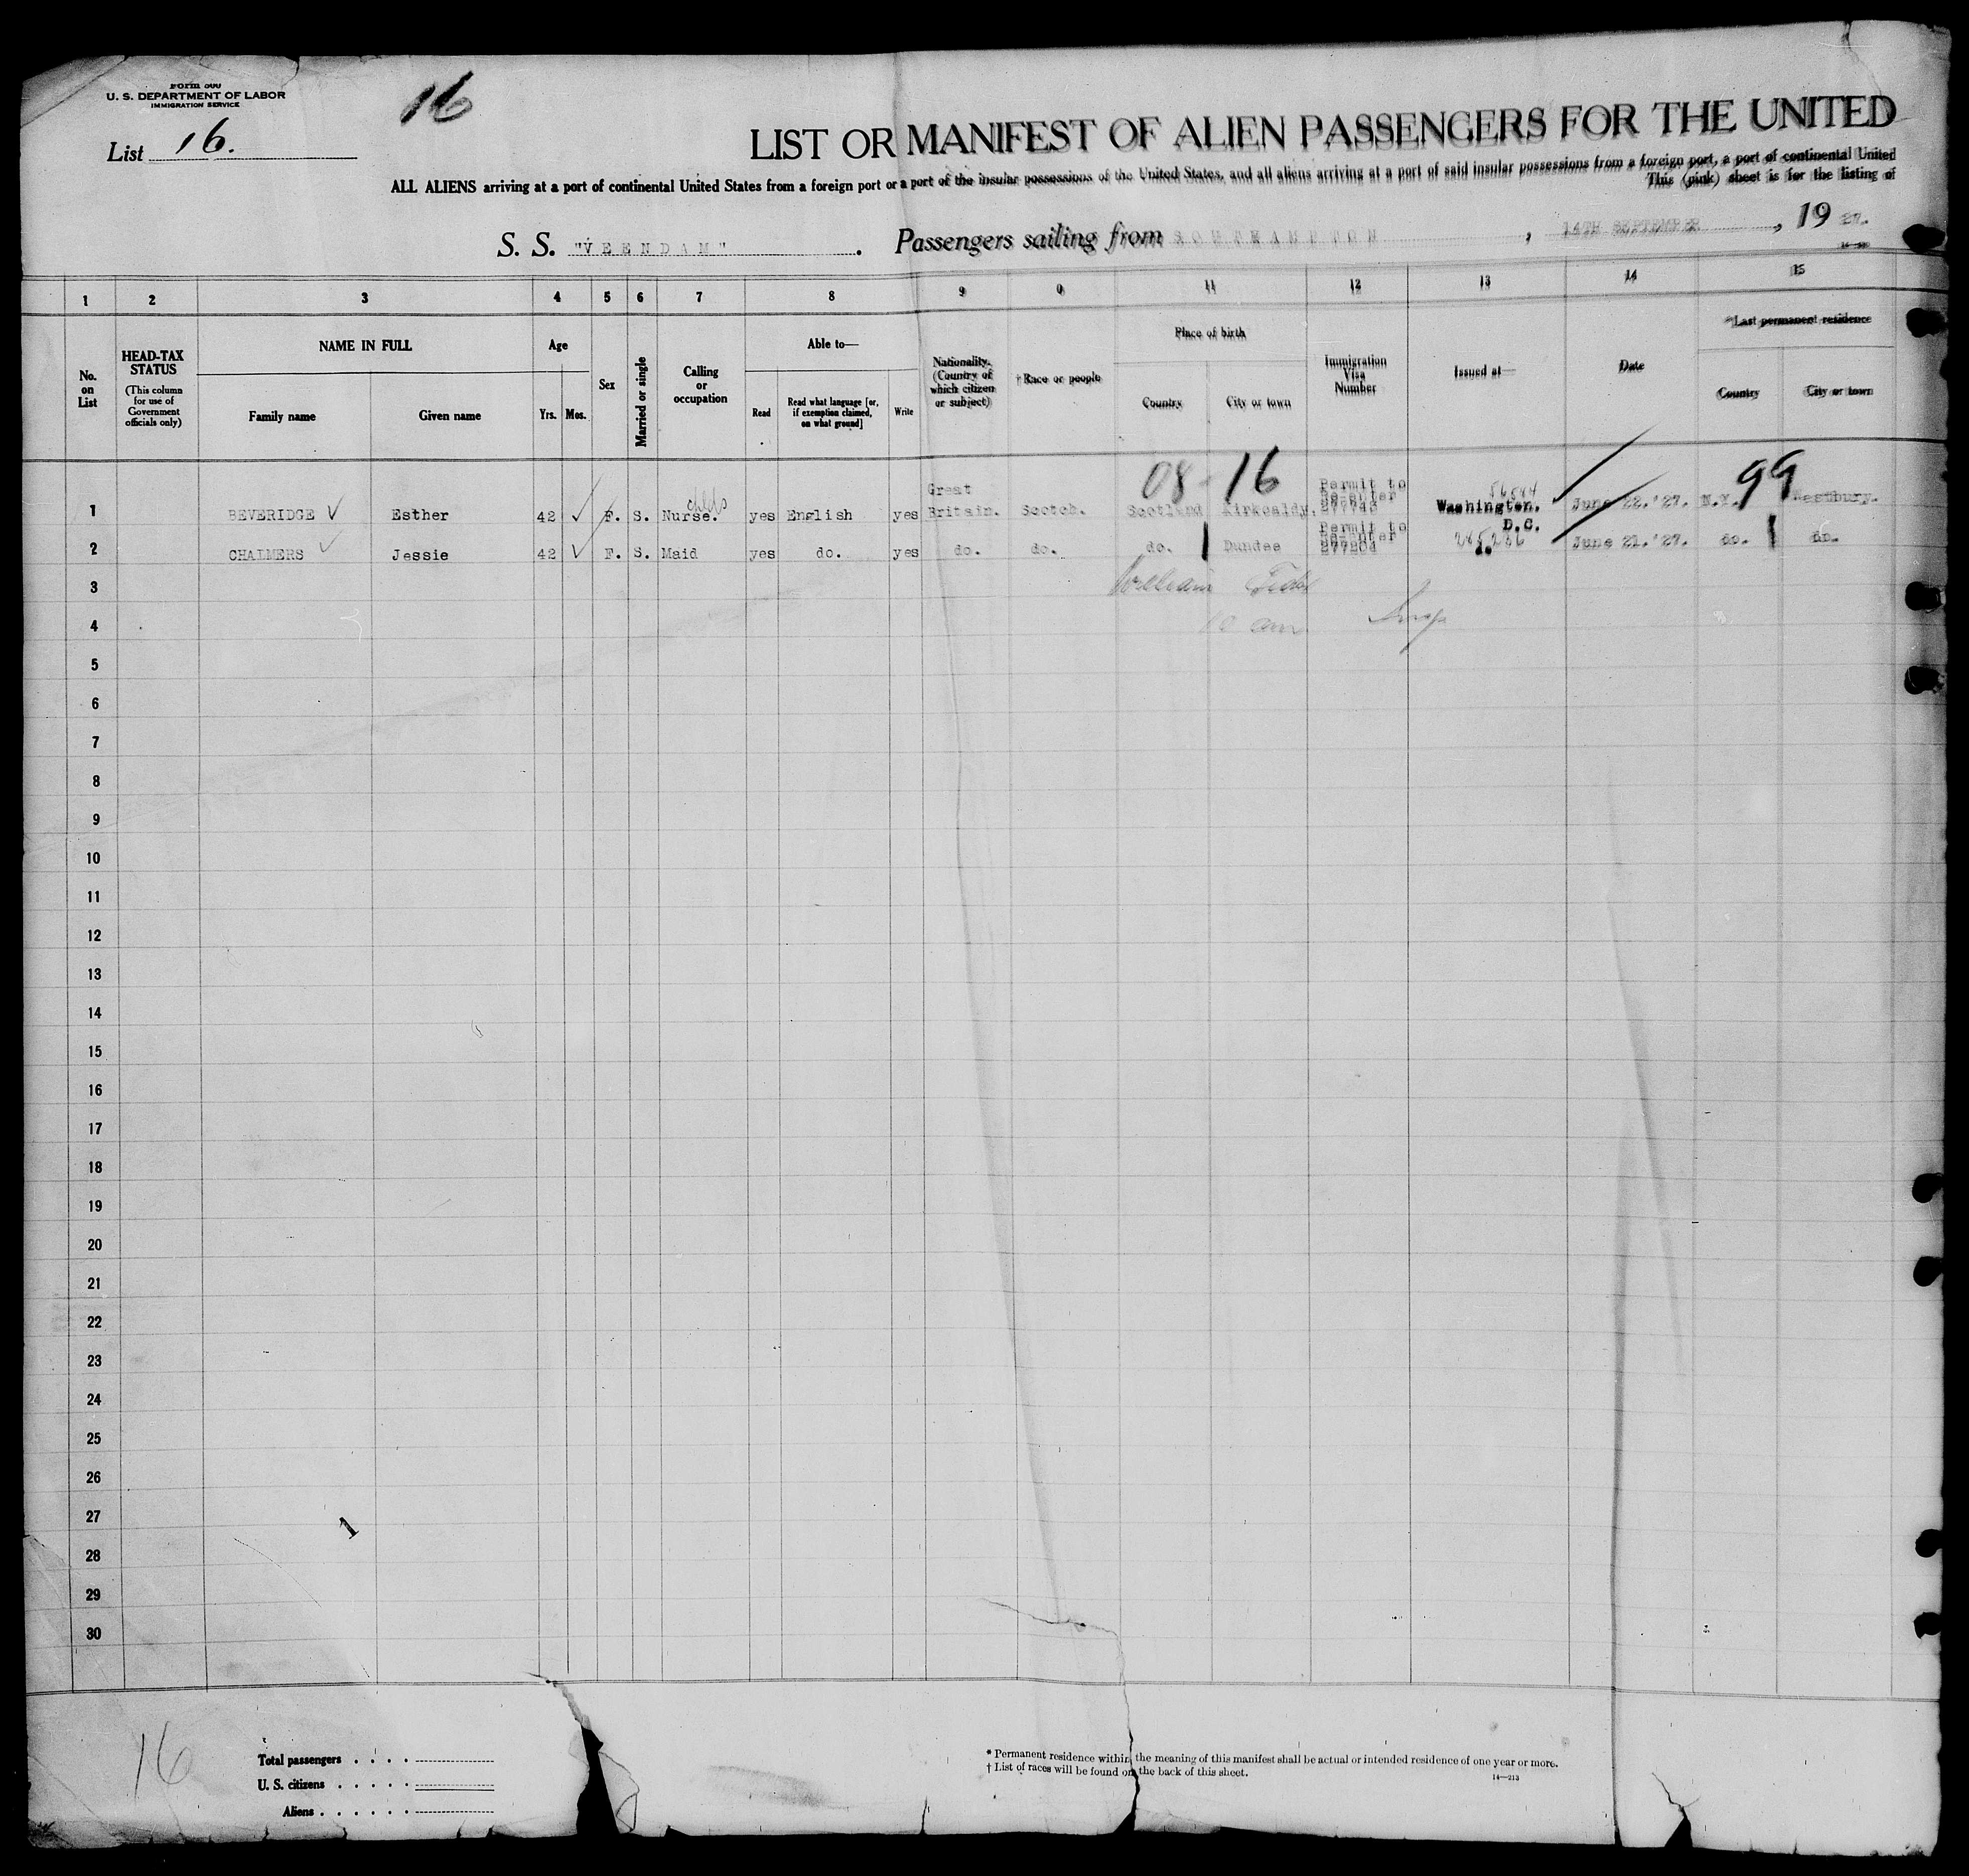 Form 500
U. S. DEPARTMENT OF LABOR
IMMIGRATION SERVICE
16
List 16.
LIST OR MANIFEST OF ALIEN PASSENGERS FOR THE UNITED
ALL ALIENS arriving at a port of continental United States from a foreign port or a port of the insular possessions of the United States, and all aliens arriving at a port of said insular possessions from a foreign port, a port of continental United
This (pink) sheet is for the listing of
S. S. "VEENDAM". Passengers sailing from SOUTHAMPTON, 14TH SEPTEMBER, 19 27.
1 2 3 4 5 6 7 8 9 11 12 13 14 15
No. on List
HEAD-TAX STATUS
(This column for use of Government officials only)
NAME IN FULL
Family name
Given name
Age
Yrs.
Mos.
Sex
Married or single
Calling or occupation
Able to—
Read
Read what language [or, if exemption claimed, on what ground]
Write
Nationality. (Country of which citizen or subject)
† Race or people
Place of birth
Country
City or town
Immigration Visa Number
Issued at—
Date
*Last permanent residence
Country
City or town
08 16 99
1 BEVERIDGE Esther 42 F. S. Nurse. childs yes English yes Great Britain. Scotch. Scotland Kirkcaldy. Permit to Re-enter 277743 Washington. D.C. June 22.'27. N.Y. Westbury.
2 CHALMERS Jessie 42 F. S. Maid yes do. yes do. do. do. Dundee Permit to Re-enter 277204 June 21.'27. do. do.
3 William
4 10 am Insp
5
6
7
8
9
10
11
12
13
14
15
16
17
18
19
20
21
22
23
24
25
26
27
28
29
30
1
16
Total passengers . . . .
U. S. citizens . . . . .
Aliens . . . . . .
* Permanent residence within the meaning of this manifest shall be actual or intended residence of one year or more.
† List of races will be found on the back of this sheet.
14—213